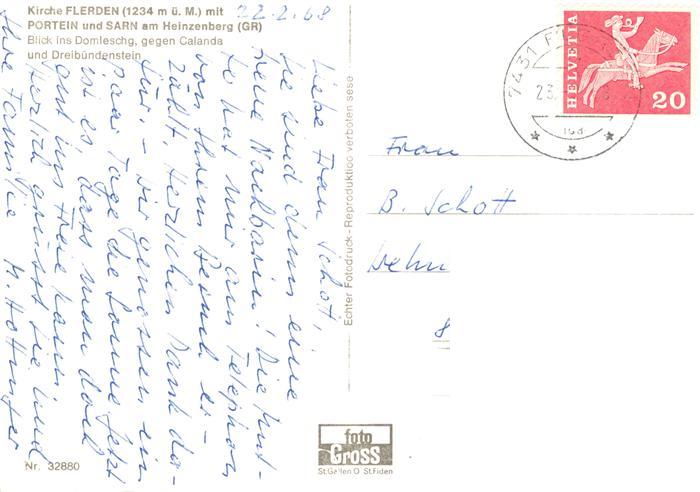 Kirche FLERDEN (1234 m ü. M.) mit
PORTEIN und SARN am Heinzenberg (GR)
Blick ins Domleschg, gegen Calanda
und Dreibündenstein
22.2.68
Liebe Frau Schott,
Sie sind denn eine
neue Nachbarin! Die
te hat mir am Telephon
von Ihrem Besuch er-
zählt, Herzlichen Dank da-
für. - Wir geniessen ein
paar Tage die Sonne. Jetzt
ist es, dass man doch
ins Freie kann.
Herzlich grüsst Sie und
Ihre Familie
Nr. 32880
Echter Fotodruck - Reproduktion verboten
foto
Gross
St.Gallen O St.Fiden
HELVETIA
20
7431
23.
Frau
B. Schott
8